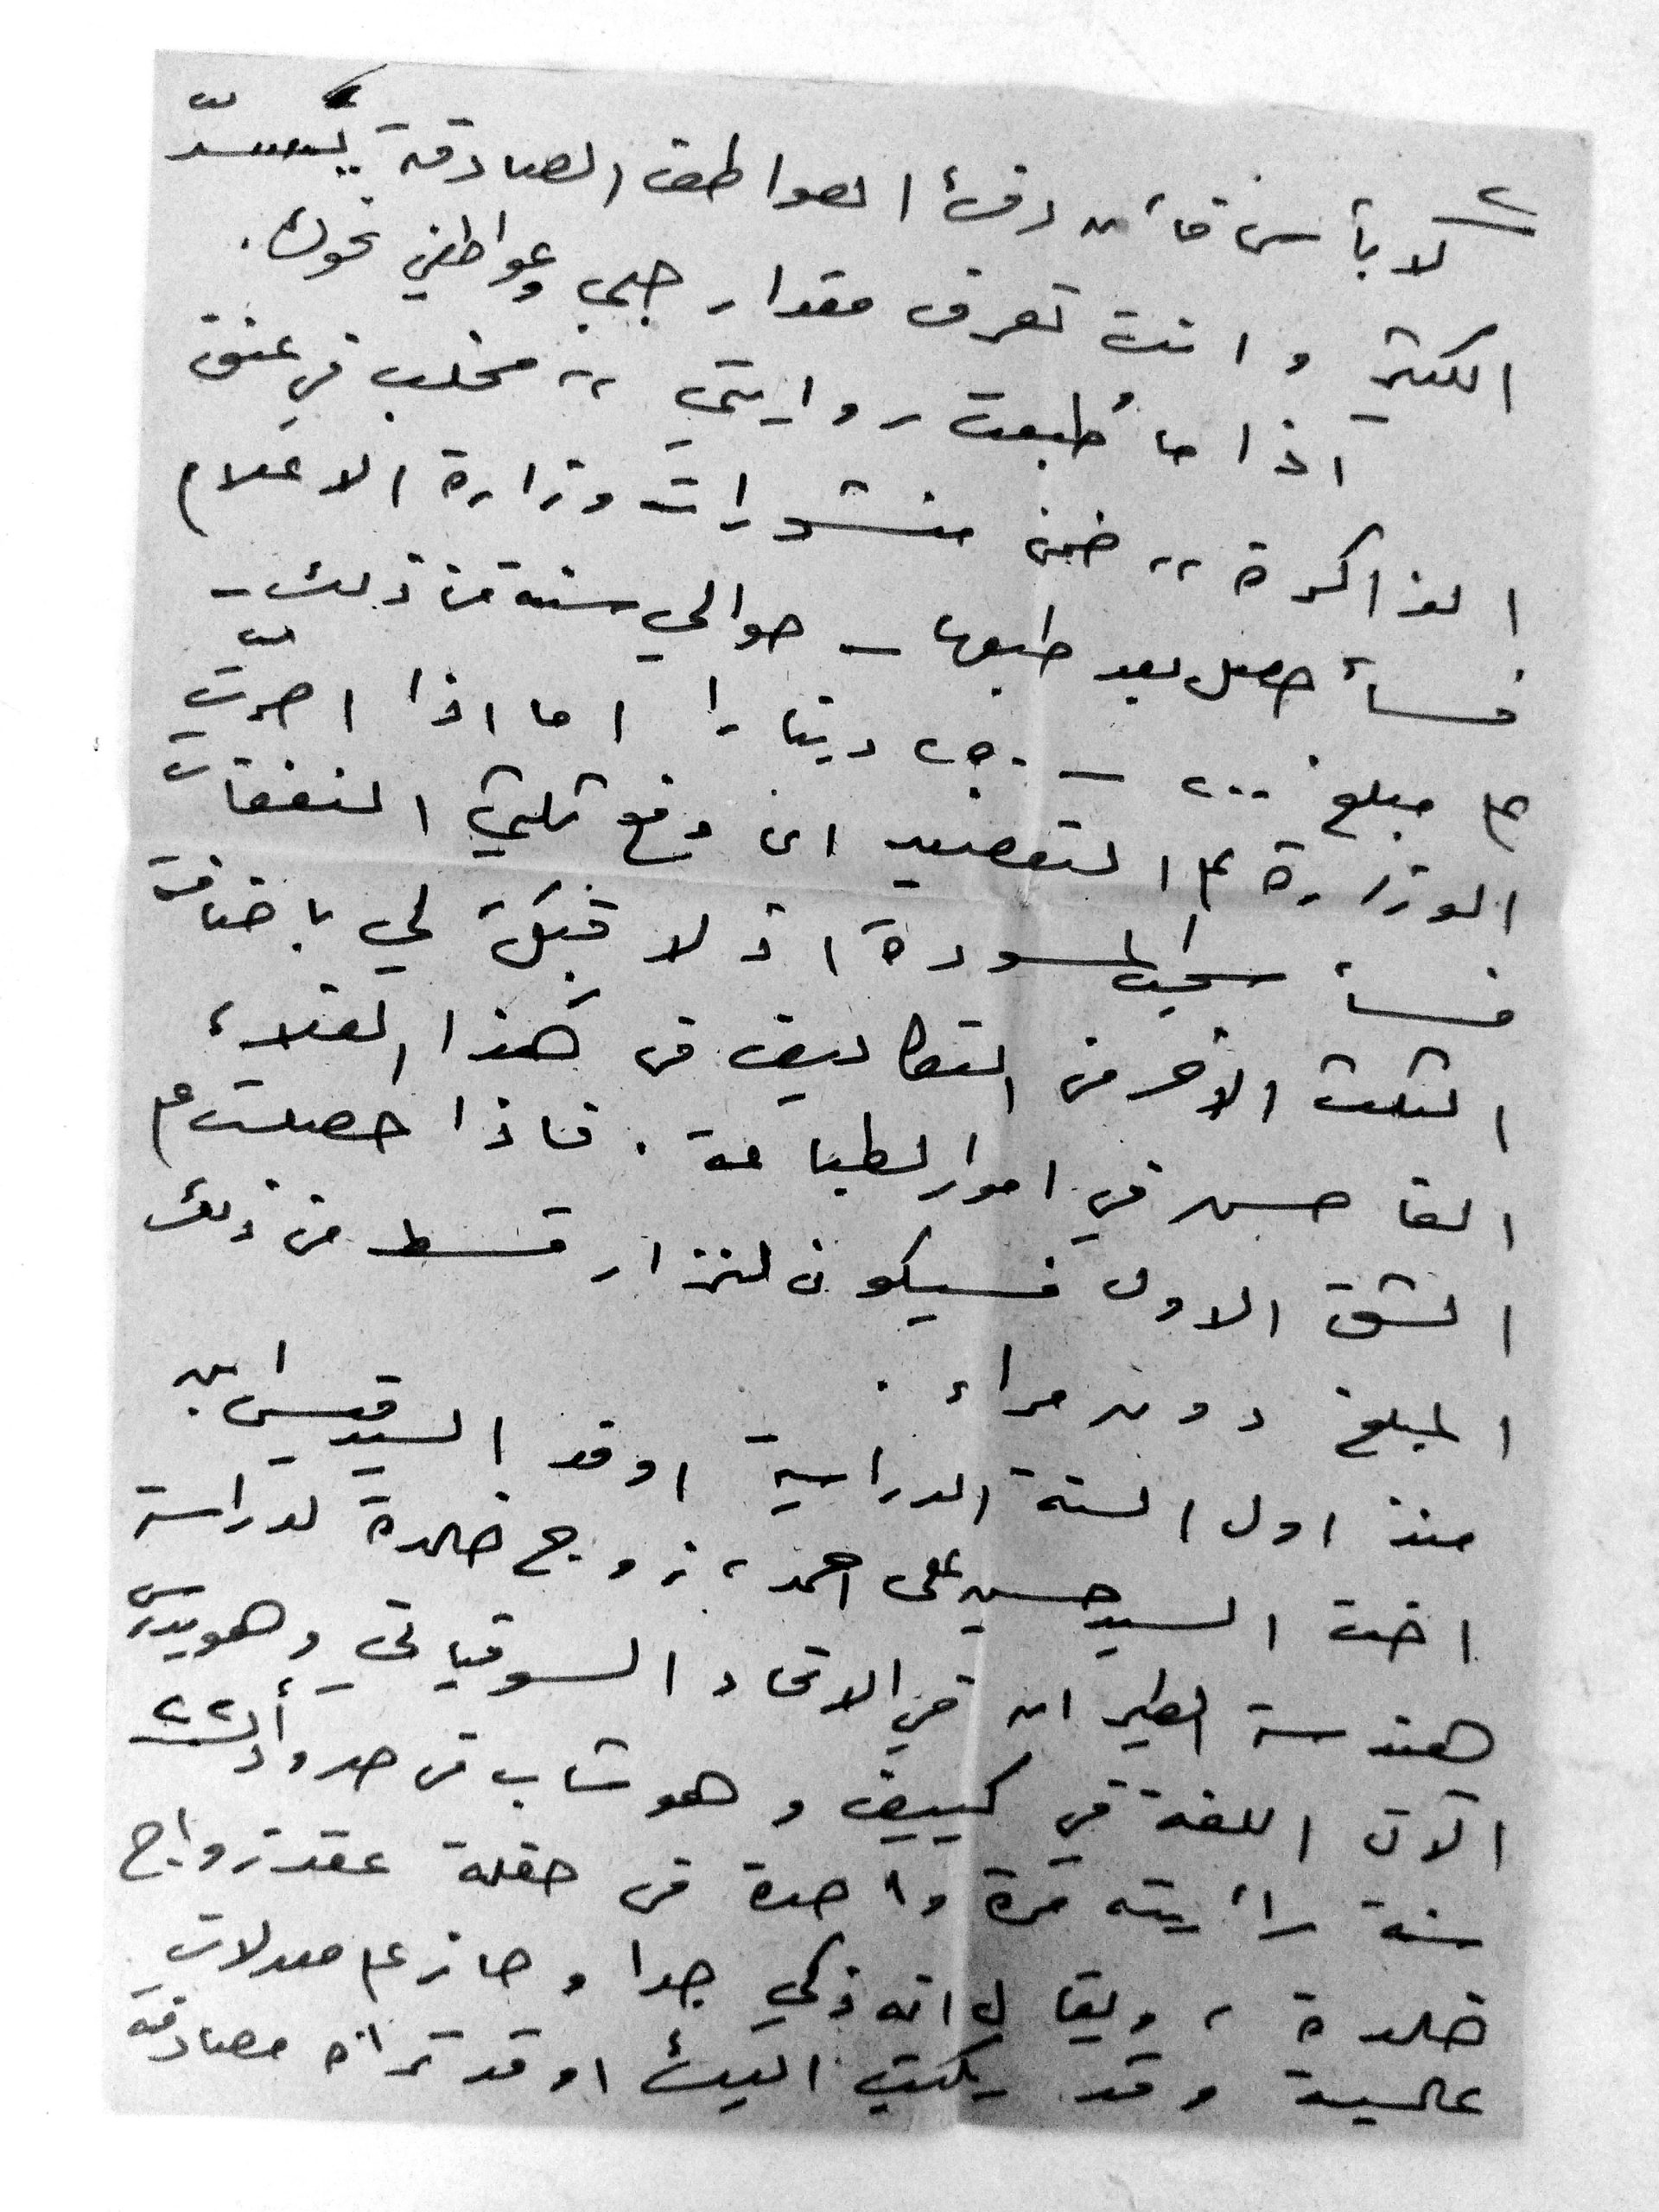 ٢
لا بأس فأن دفء العواطف الصادقة يسدّ
الكثير وانت تعرف مقدار حبي وعواطفي نحوك.
اذا ما طُبعت روايتي ،، مخلب في عنق
الذاكرة ،، ضمن منشورات وزارة الاعلام
فسأحصل بعد طبعها – حوالي سنة من ذلك –
ع مبلغ ٢٠٠ – ٢٥٠ دينارا اما اذا اصرّت
الوزارة ع التعضيد اي دفع ثلثي النفقات
فسأسحب المسودة اذ لا قِبَلَ لي باضافة
الثلث الاخر من التكاليف في هذا الغلاء
الفاحش في امور الطباعة . فاذا حصلت ع
الشق الاول فسيكون لنزار قسط من ذلك
المبلغ دون مراء .
منذ اول السنة الدراسية اوفد السيد قيس ابن
اخت السيد حسين علي احمد ، زوج خلدة لدراسة
هندسة الطيران في الاتحاد السوفياتي وهو يدرس
الآن اللغة في كييف وهو شاب في حدود أل ٢٢
سنة رأيته مرة واحدة في حفلة عقد زواج
خلدة ، ويقال انه ذكي جدا وحاز ع معدلات
عالية وقد يكتب اليك او قد تراه مصادفة